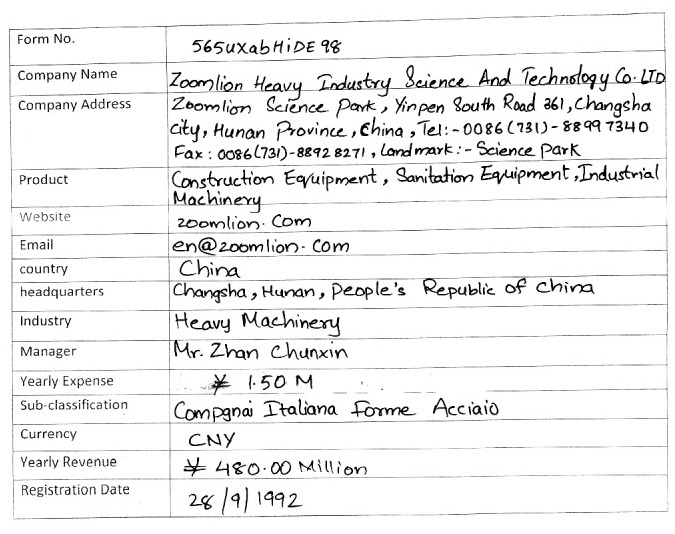 Form No. 565uxabHiDE98
Company Name Zoomlion Heavy Industry Science And Technology Co. LTD
Company Address Zoomlion Science Park, Yinpen South Road 361, Changsha
City, Hunan Province, China, Tel:- 0086(731)-88997340
Fax: 0086(731)-88928271, Landmark:- Science Park
Product Construction Equipment, Sanitation Equipment, Industrial
Machinery
Website zoomlion.com
Email en@zoomlion.com
country China
headquarters Changsha, Hunan, People's Republic of China
Industry Heavy Machinery
Manager Mr. Zhan Chunxin
Yearly Expense ¥ 1.50 M
Sub-classification Compgnai Italiana Forme Acciaio
Currency CNY
Yearly Revenue ¥ 480.00 Million
Registration Date 28/9/1992